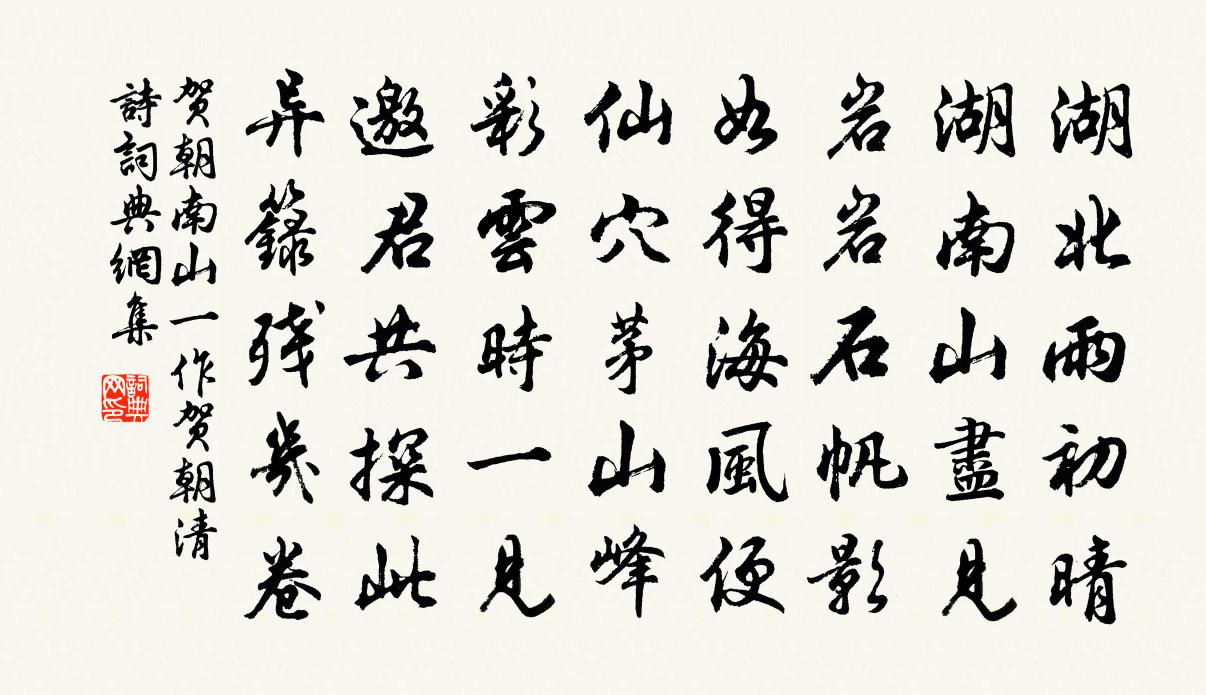 湖北雨初晴
湖南山盡見
岩岩石帆影
如得海風便
仙穴茅山峰
彩雲時一見
邀君共探此
异籙殘幾卷
贺朝南山一作贺朝清
詩詞典網集
詞典网印